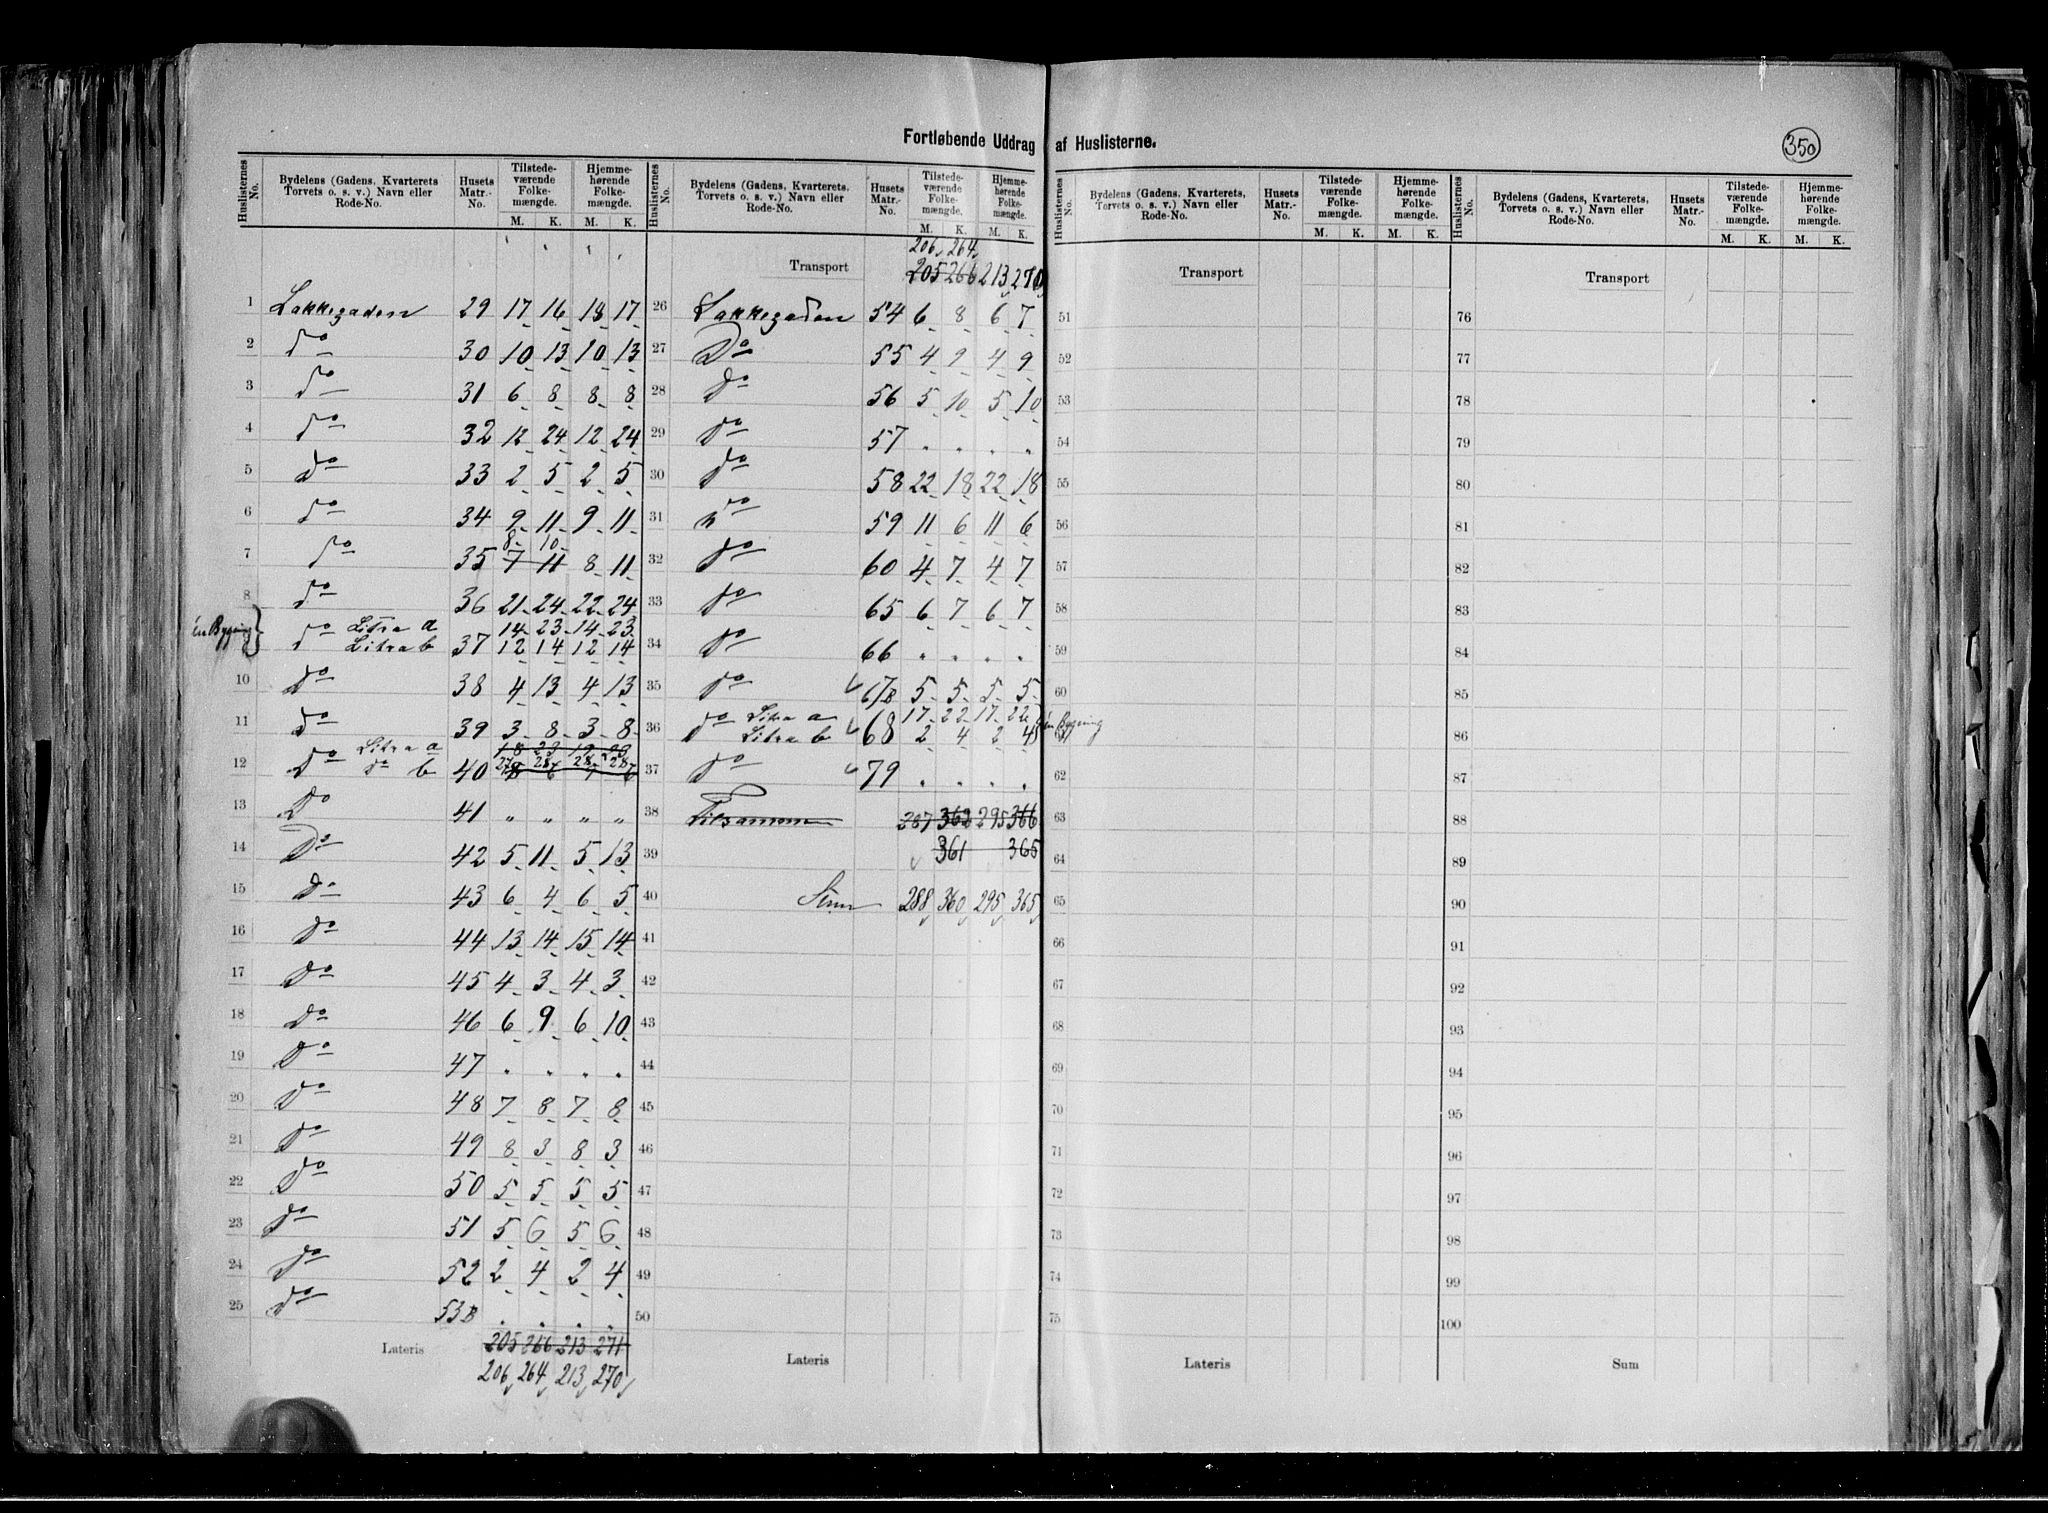 Fortløbende Uddrag af Huslisterne.
350
Huslisternes No. | Bydelens (Gadens, Kvarterets Torvets o. s. v.) Navn eller Rode-No. | Husets Matr.-No. | Tilstede-værende Folke-mængde. M. K. | Hjemme-hørende Folke-mængde. M. K.
1 Lakkegaden 29 17 16 18 17
2 Do 30 10 13 10 13
3 Do 31 6 8 8 8
4 Do 32 12 24 12 24
5 Do 33 2 5 2 5
6 Do 34 9 11 9 11
8 10
7 Do 35 7 11 8 11
8 Do 36 21 24 22 24
én Bygning
Do Litra a 14 23 14 23
Litra b 37 12 14 12 14
10 Do 38 4 13 4 13
11 Do 39 3 8 3 8
12 Do Litra a
do b 40
13 Do 41 " " " "
14 Do 42 5 11 5 13
15 Do 43 6 4 6 5
16 Do 44 13 14 15 14
17 Do 45 4 3 4 3
18 Do 46 6 9 6 10
19 Do 47 " " " "
20 Do 48 7 8 7 8
21 Do 49 8 3 8 3
22 Do 50 5 5 5 5
23 Do 51 5 6 5 6
24 Do 52 2 4 2 4
25 Do 53B . . . .
205 266 213 271
Lateris
206 264 213 270
Huslisternes No. | Bydelens (Gadens, Kvarterets, Torvets o. s. v.) Navn eller Rode-No. | Husets Matr.-No. | Tilstede-værende Folke-mængde. M. K. | Hjemme-hørende Folke-mængde. M. K.
206 264
Transport 205 266 213 270
26 Lakkegaden 54 6 8 6 7
27 Do 55 4 9 4 9
28 do 56 5 10 5 10
29 do 57 " " " "
30 do 58 22 18 22 18
31 Do 59 11 6 11 6
32 do 60 4 7 4 7
33 do 65 6 7 6 7
34 do 66 " " " "
35 do 67B 5 5 5 5
36 do Litra a 17 22 17 22 én Bygning
Litra b 68 2 4 2 4
37 do 79 . . . .
38 Tilsammen 287 362 295 366
39 361 365
40 Sum 288 360 295 365
41
42
43
44
45
46
47
48
49
50
Lateris
Huslisternes No. | Bydelens (Gadens, Kvarterets, Torvets o. s. v.) Navn eller Rode-No. | Husets Matr.-No. | Tilstede-værende Folke-mængde. M. K. | Hjemme-hørende Folke-mængde. M. K.
Transport
51
52
53
54
55
56
57
58
59
60
62
63
64
65
66
67
68
69
70
71
72
73
74
75
Lateris
Huslisternes No. | Bydelens (Gadens, Kvarterets, Torvets o. s. v.) Navn eller Rode-No. | Husets Matr.-No. | Tilstede-værende Folke-mængde. M. K. | Hjemme-hørende Folke-mængde. M. K.
Transport
76
77
78
79
80
81
82
83
84
85
86
87
88
89
90
91
92
93
94
95
96
97
98
99
100
Sum